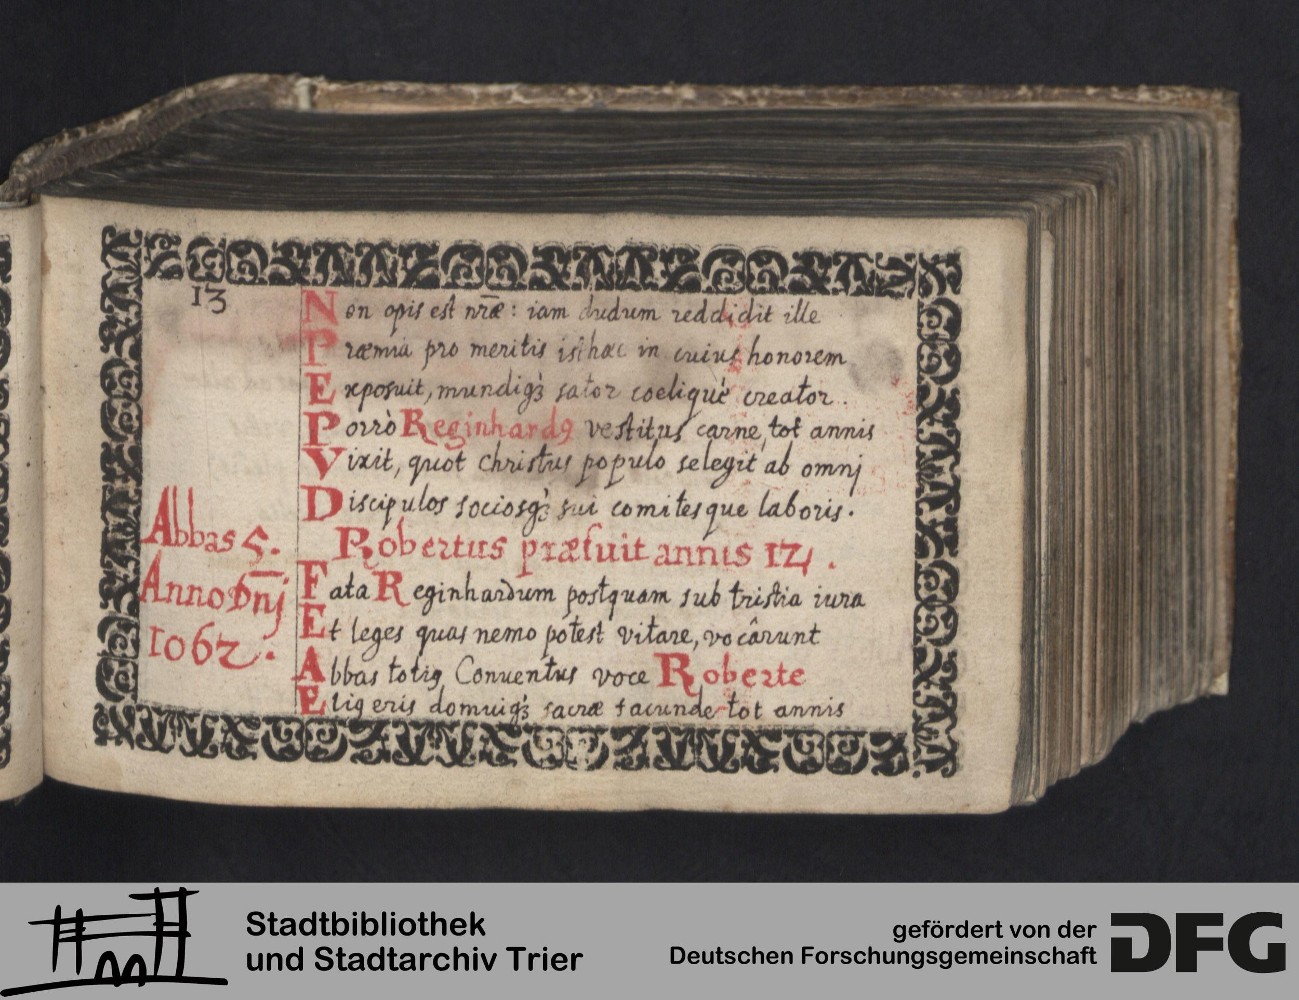 13
Non opis est nr̄æ: iam dudum reddidit ille
Præmia pro meritis isthæc in cuius honorem
Exposuit, mundiqꝫ sator coelique creator.
Porrò Reginhardꝰ vestitus carne, tot annis
Vixit, quot Christus populo selegit ab omnj
Discipulos sociosqꝫ sui comitesque laboris.
Abbas 5.
Anno Dn̄j
1062.
Robertus præfuit annis 12.
Fata Reginhardum postquam sub tristia iura
Et leges quas nemo potest vitare, vocârunt
Abbas totiꝰ Conuentus voce Roberte
Eligeris domuiqꝫ sacræ facunde tot annis
Stadtbibliothek
und Stadtarchiv Trier
gefördert von der
Deutschen Forschungsgemeinschaft
DFG